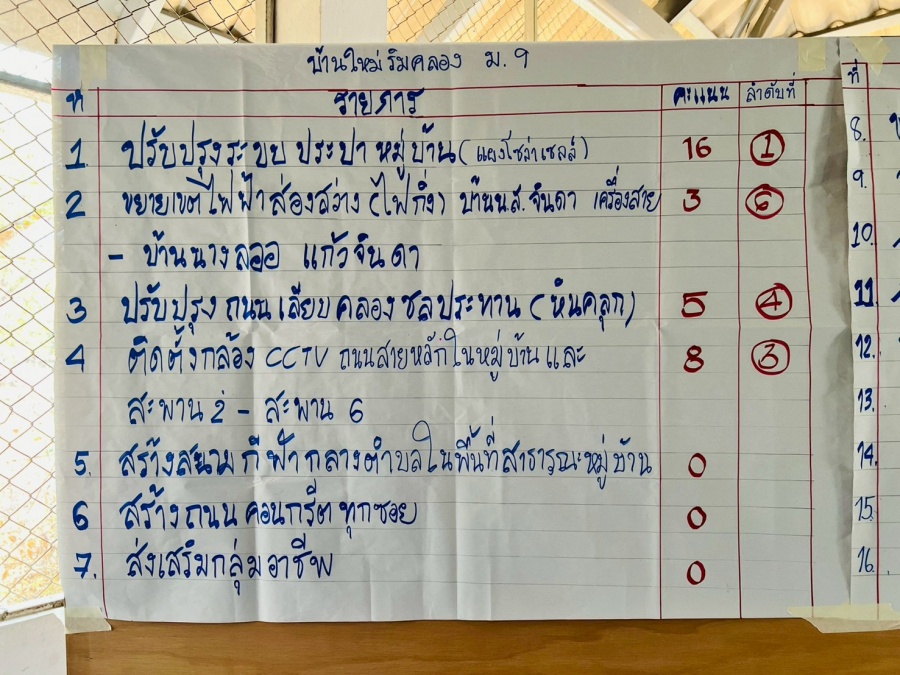 บ้านใหม่ริมคลอง ม.9
ที่ รายการ คะแนน ลำดับที่
1. ปรับปรุงระบบประปาหมู่บ้าน (แผงโซล่าเซลล์) 16 1
2 ขยายเขตไฟฟ้าส่องสว่าง (ไฟกิ่ง) บ้านน.ส.จินดา เครื่องสาย 3 6
- บ้านนางลออ แก้วจินดา
3 ปรับปรุงถนนเลียบคลองชลประทาน (หินคลุก) 5 4
4 ติดตั้งกล้อง CCTV ถนนสายหลักในหมู่บ้านและ 8 3
สะพาน 2 - สะพาน 6
5. สร้างสนามกีฬากลางตำบลในพื้นที่สาธารณะหมู่บ้าน 0
6 สร้างถนนคอนกรีตทุกซอย 0
7. ส่งเสริมกลุ่มอาชีพ 0
ที่
8.
9.
10.
11.
12.
13.
14.
15.
16.